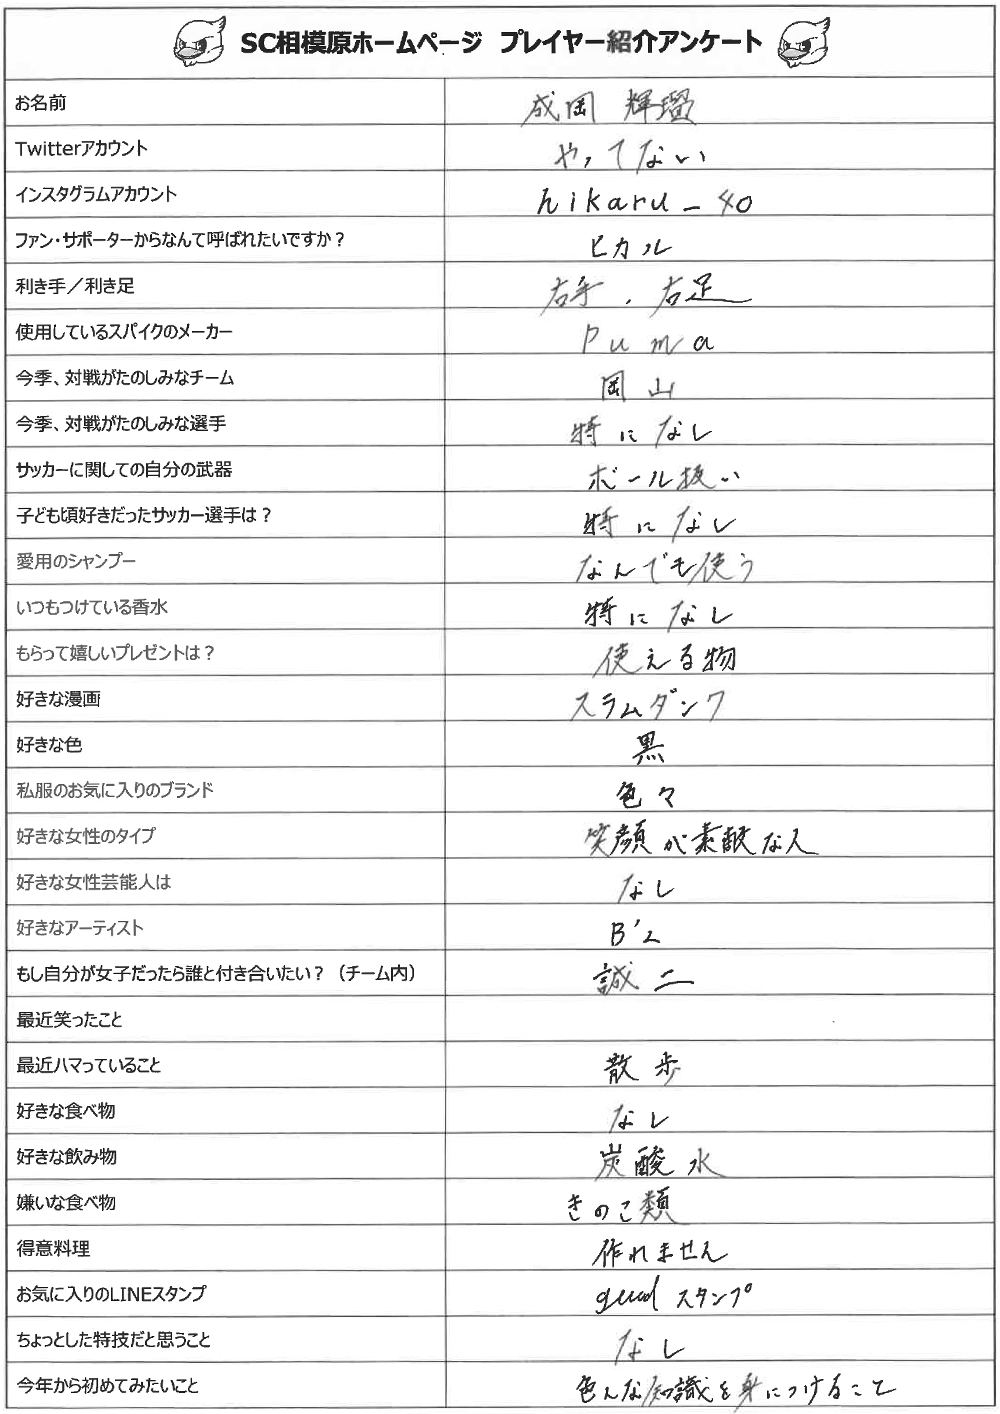 SC相模原ホームページ プレイヤー紹介アンケート
お名前 成岡 輝瑠
Twitterアカウント やってない
インスタグラムアカウント hikaru_40
ファン・サポーターからなんて呼ばれたいですか？ ヒカル
利き手／利き足 右手、右足
使用しているスパイクのメーカー Puma
今季、対戦がたのしみなチーム 岡山
今季、対戦がたのしみな選手 特になし
サッカーに関しての自分の武器 ボール扱い
子ども頃好きだったサッカー選手は？ 特になし
愛用のシャンプー なんでも使う
いつもつけている香水 特になし
もらって嬉しいプレゼントは？ 使える物
好きな漫画 スラムダンク
好きな色 黒
私服のお気に入りのブランド 色々
好きな女性のタイプ 笑顔が素敵な人
好きな女性芸能人は なし
好きなアーティスト B'z
もし自分が女子だったら誰と付き合いたい？（チーム内） 誠二
最近笑ったこと
最近ハマっていること 散歩
好きな食べ物 なし
好きな飲み物 炭酸水
嫌いな食べ物 きのこ類
得意料理 作れません
お気に入りのLINEスタンプ good スタンプ
ちょっとした特技だと思うこと なし
今年から初めてみたいこと 色んな知識を身につけること